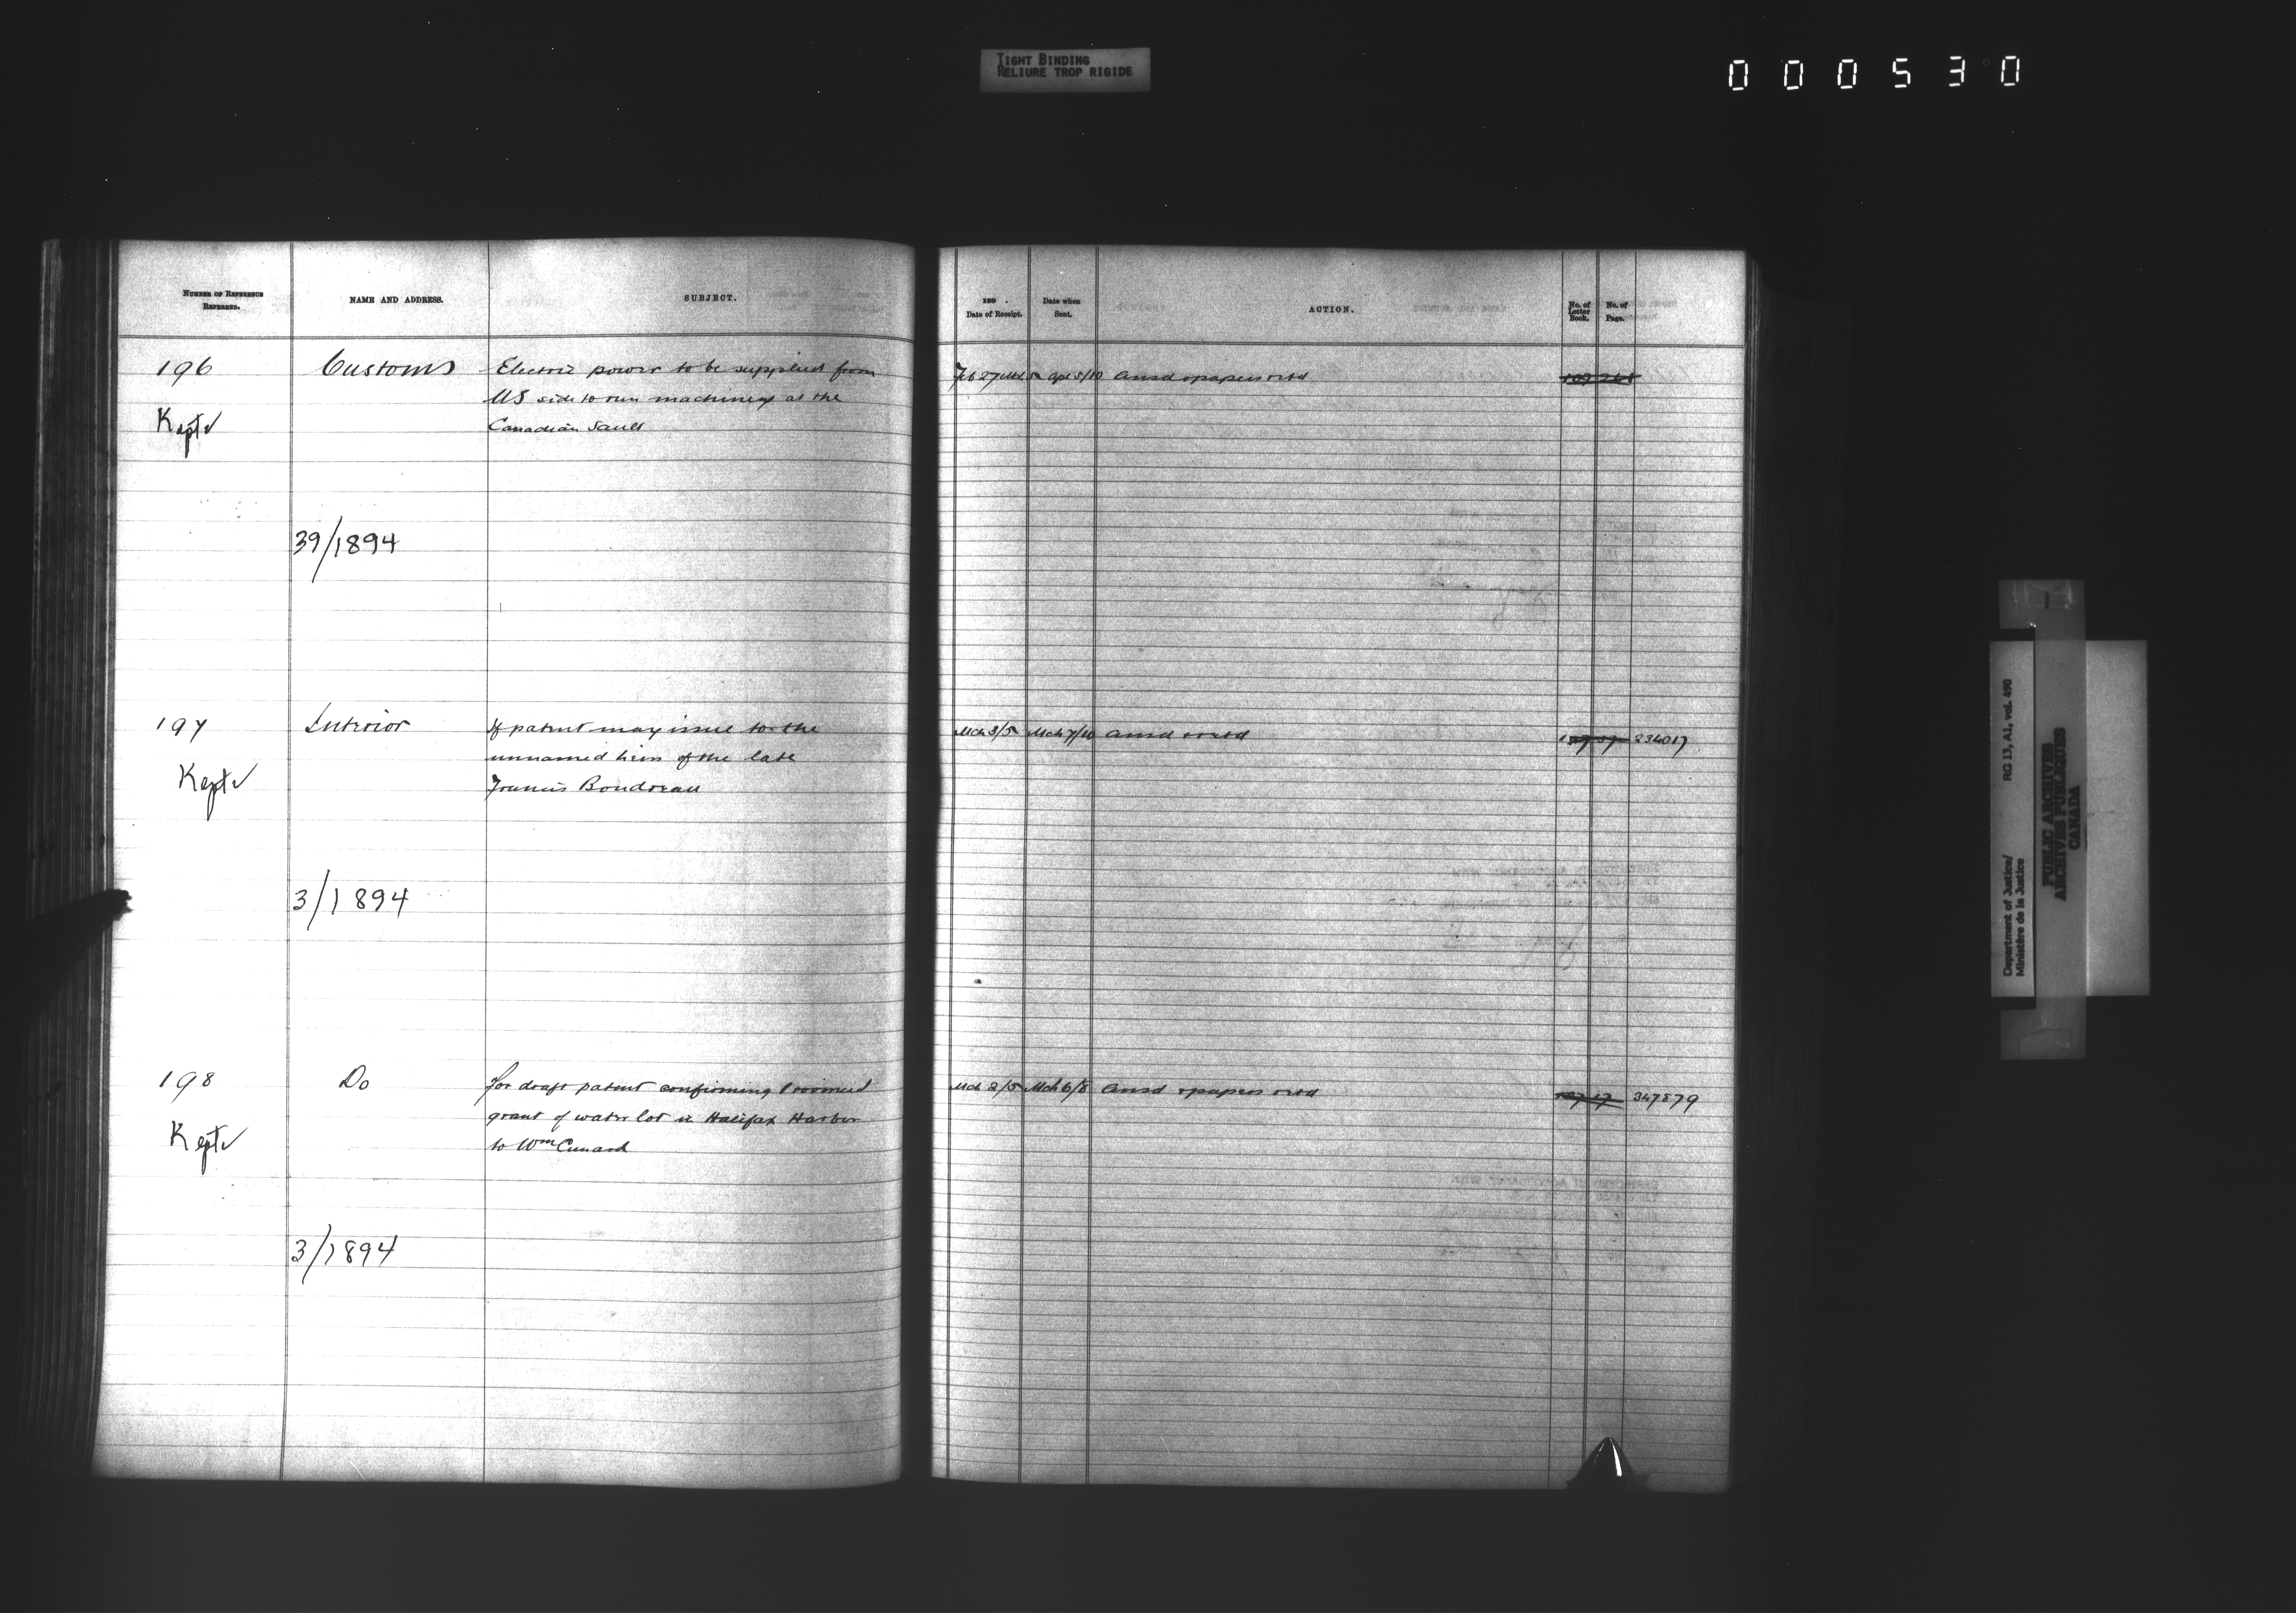 TIGHT BINDING
RELIURE TROP RIGIDE
000530
NUMBER OF REFERENCE
REFERRED.
NAME AND ADDRESS.
SUBJECT.
189 .
Date of Receipt.
Date when
Sent.
ACTION.
No. of
Letter
Book.
No. of
Page.
196
Customs
Electric power to be supplied from
US side to run machinery at the
Canadian Sault
Kept
Feb 27
Apl 5/10 ansd & papers retd
39/1894
197
Interior
If patent may issue to the
unnamed heirs of the late
Francis Boudreau
Kept
Mch 3/5
Mch 7/10
ansd & retd
234017
3/1894
198
Do
for draft patent confirming
grant of water lot in Halifax Harbor
to Wm Cunard
Kept
Mch 2/5
Mch 6/8
ansd & papers retd
347879
3/1894
Department of Justice/
Ministère de la Justice
RG 13, A1, vol. 490
PUBLIC ARCHIVES
ARCHIVES PUBLIQUES
CANADA